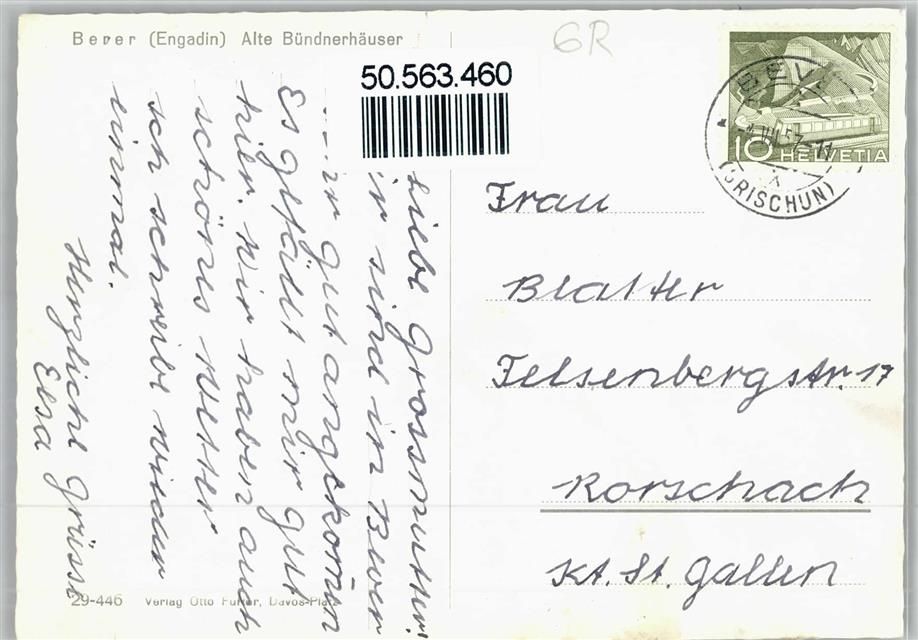 Bever (Engadin) Alte Bündnerhäuser
GR
50.563.460
10 HELVETIA
(GRISCHUN)
Liebe Grossmutter!
Wir sind in Bever
gut angekomm̄en
Es gefällt mir gut
hier. Wir haben auch
schönes Wetter
ich schreibe wieder
einmal.
Herzliche Grüsse
Elsa
Frau
Blatter
Felsenbergstr. 17
Rorschach
Kt. St. Gallen
29-446 Verlag Otto Furter, Davos-Platz